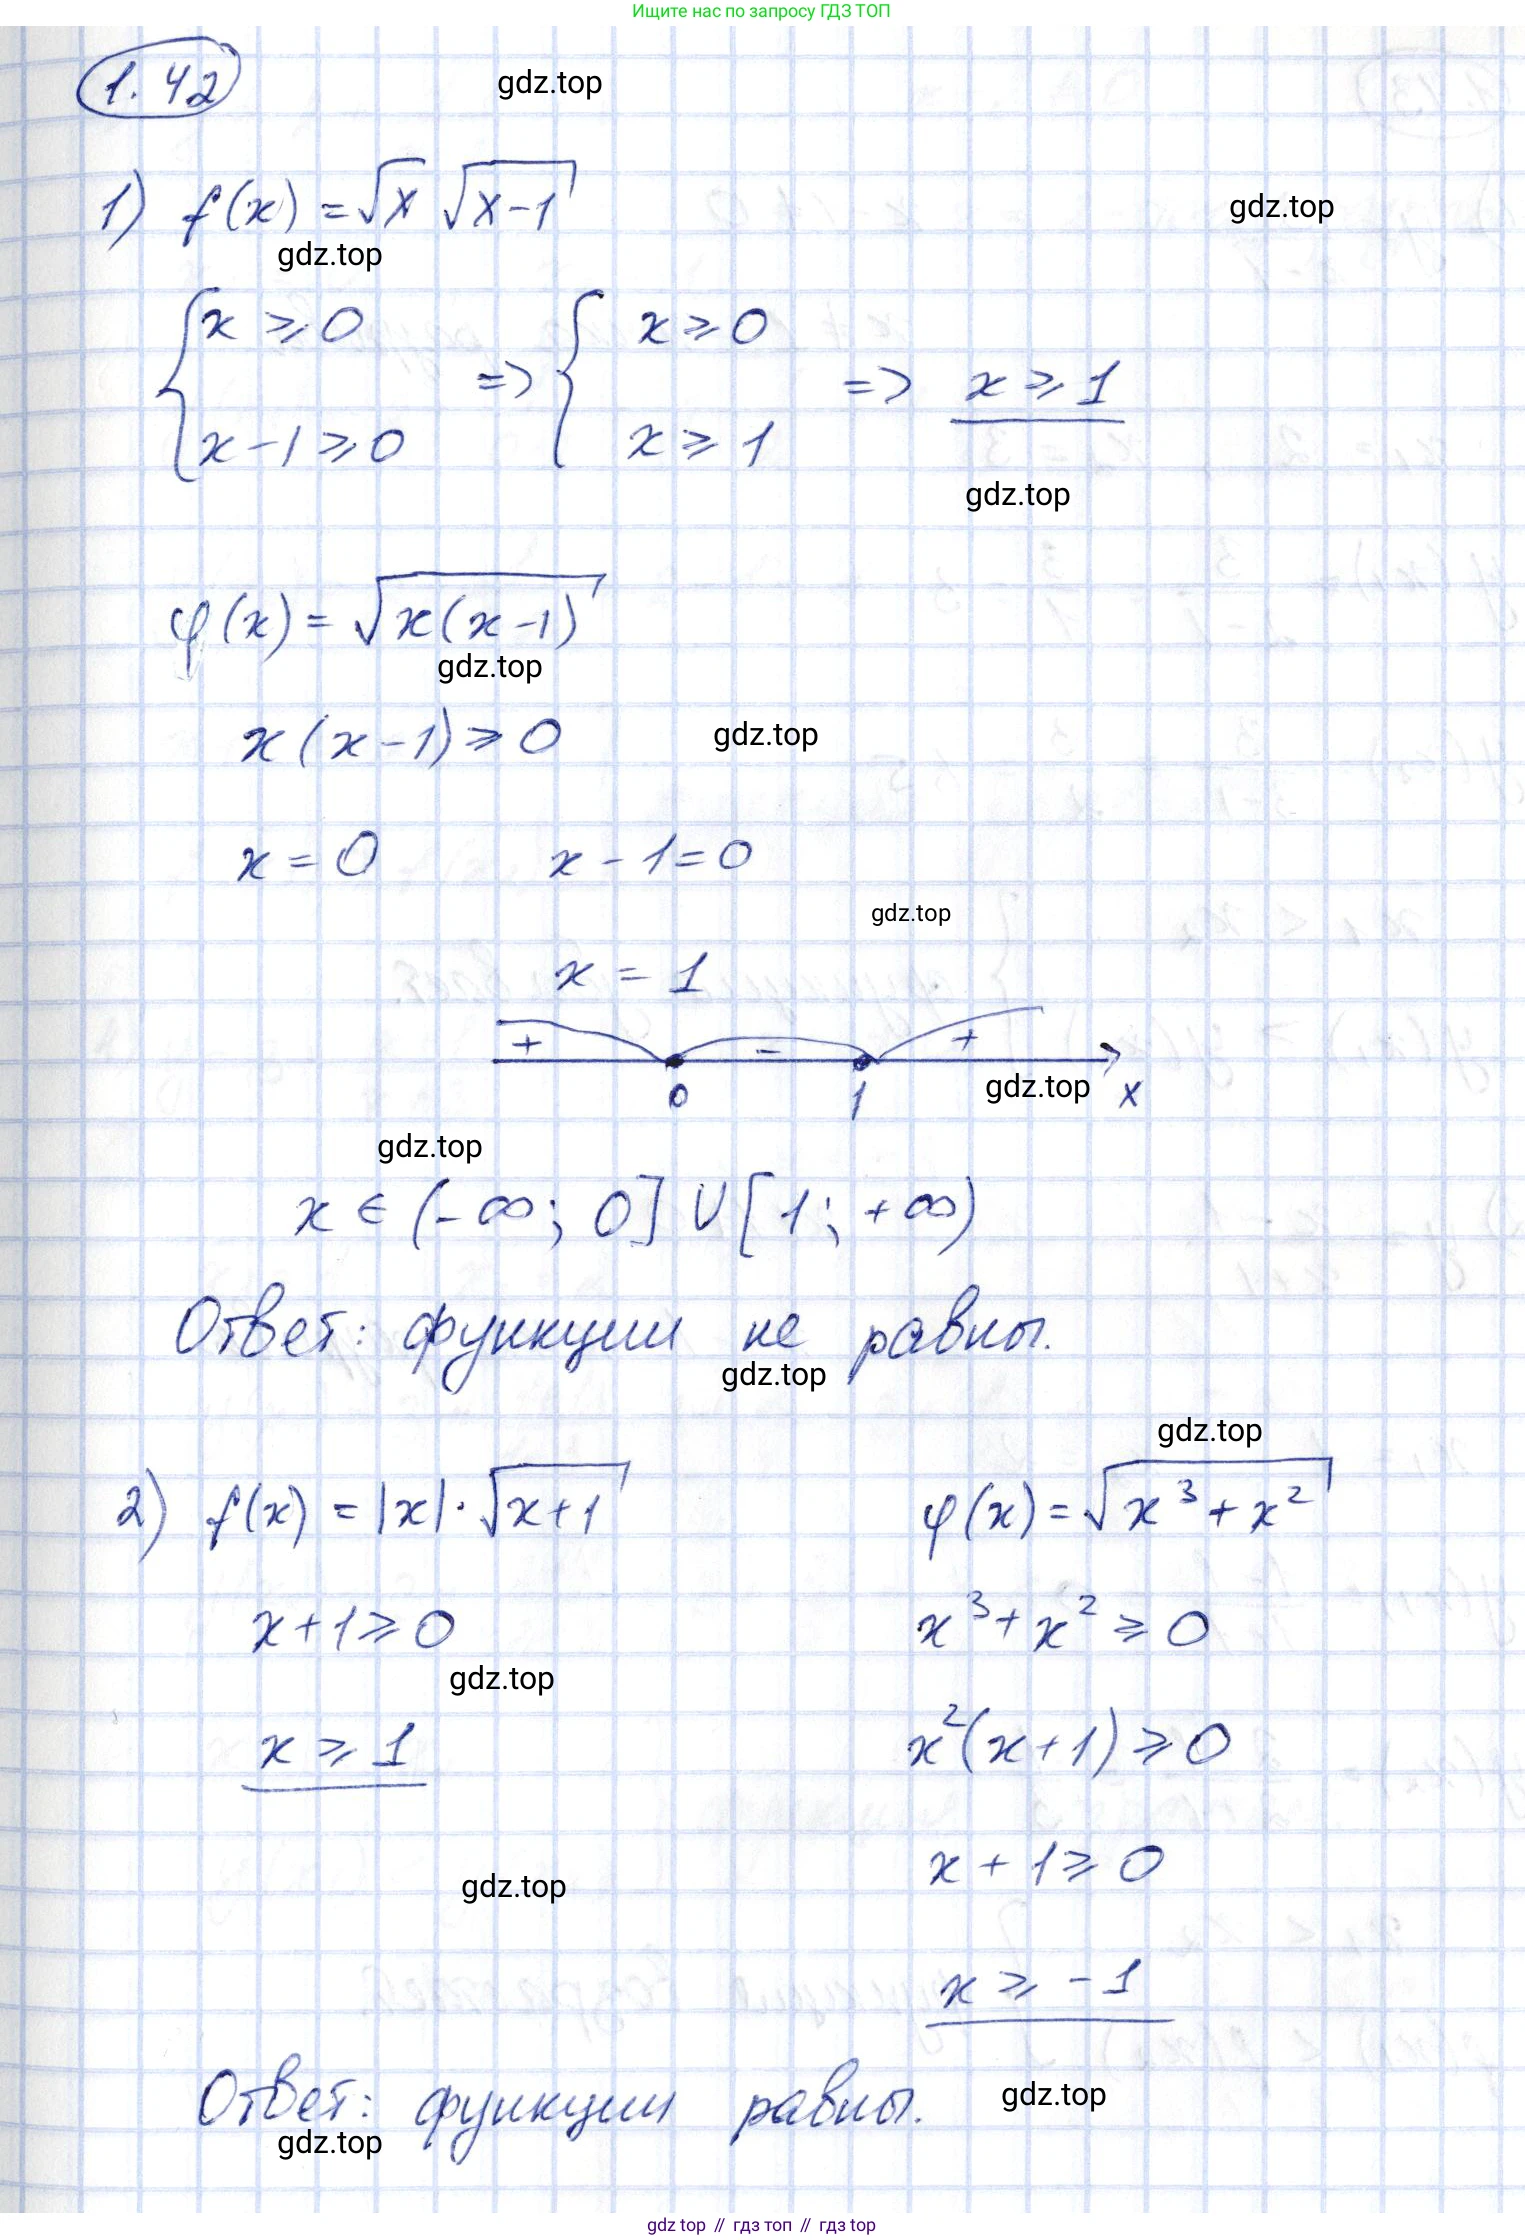 Ищите нас по запросу ГДЗ ТОП
1.42
gdz.top
1) f(x) = √x √(x-1)
gdz.top
gdz.top
{ x ⩾ 0 => { x ⩾ 0 => x ⩾ 1
x-1 ⩾ 0 x ⩾ 1
gdz.top
φ(x) = √(x(x-1))
gdz.top
x(x-1) ⩾ 0
gdz.top
x = 0 x - 1 = 0
gdz.top
x = 1
+ - +
0 1 x
gdz.top
gdz.top
x ∈ (-∞; 0] ∪ [1; +∞)
Ответ: функции не равны.
gdz.top
gdz.top
2) f(x) = |x| · √(x+1) φ(x) = √(x³ + x²)
x+1 ⩾ 0 x³ + x² ⩾ 0
gdz.top
x ⩾ 1 x²(x+1) ⩾ 0
x + 1 ⩾ 0
gdz.top
x ⩾ -1
Ответ: функции равны.
gdz.top
gdz.top
gdz top // гдз топ // гдз top